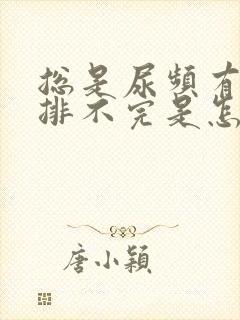 总是尿频有
排不完是怎
唐小颖